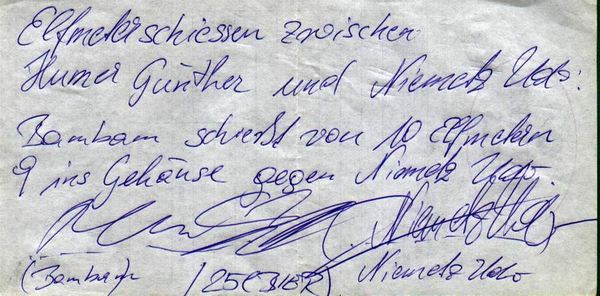 Elfmeterschiessen zwischen
Humer Günther und Niemetz Udo:
Bambam schießt von 10 Elfmetern
9 ins Gehäuse gegen Niemetz Udo
(Bambam) 125 (BIER) Niemetz Udo